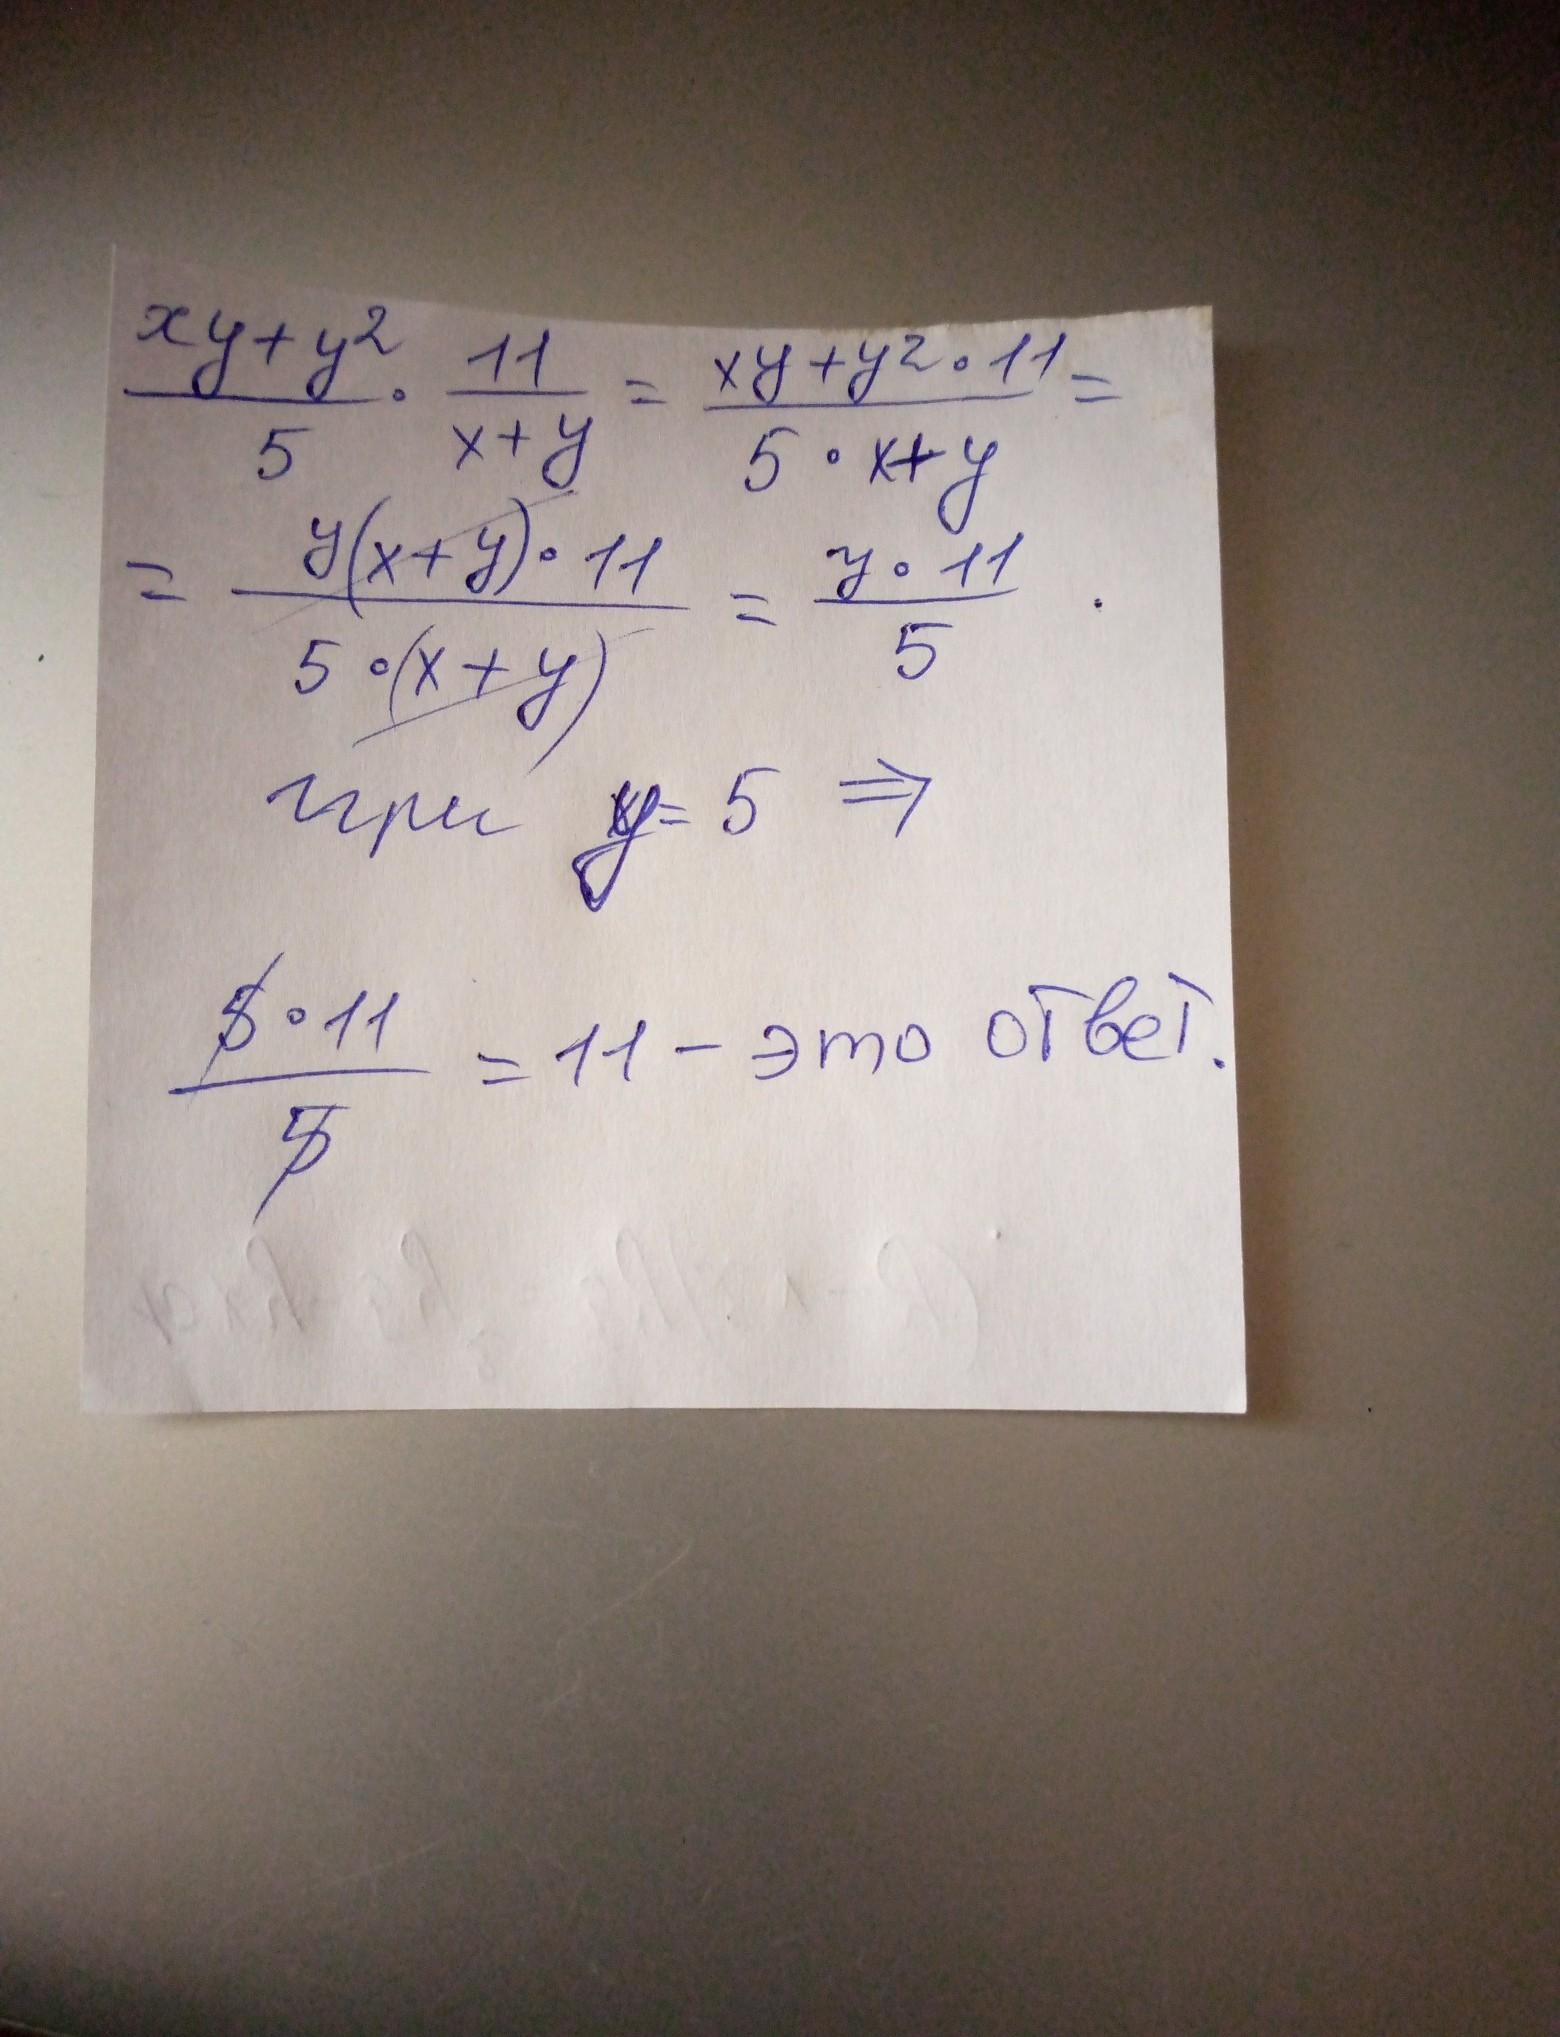 xy+y²/5 · 11/x+y = xy+y²·11/5·x+y =
= y(x+y)·11/5·(x+y) = y·11/5 .
при y=5 ⇒
5·11/5 = 11 – это ответ.